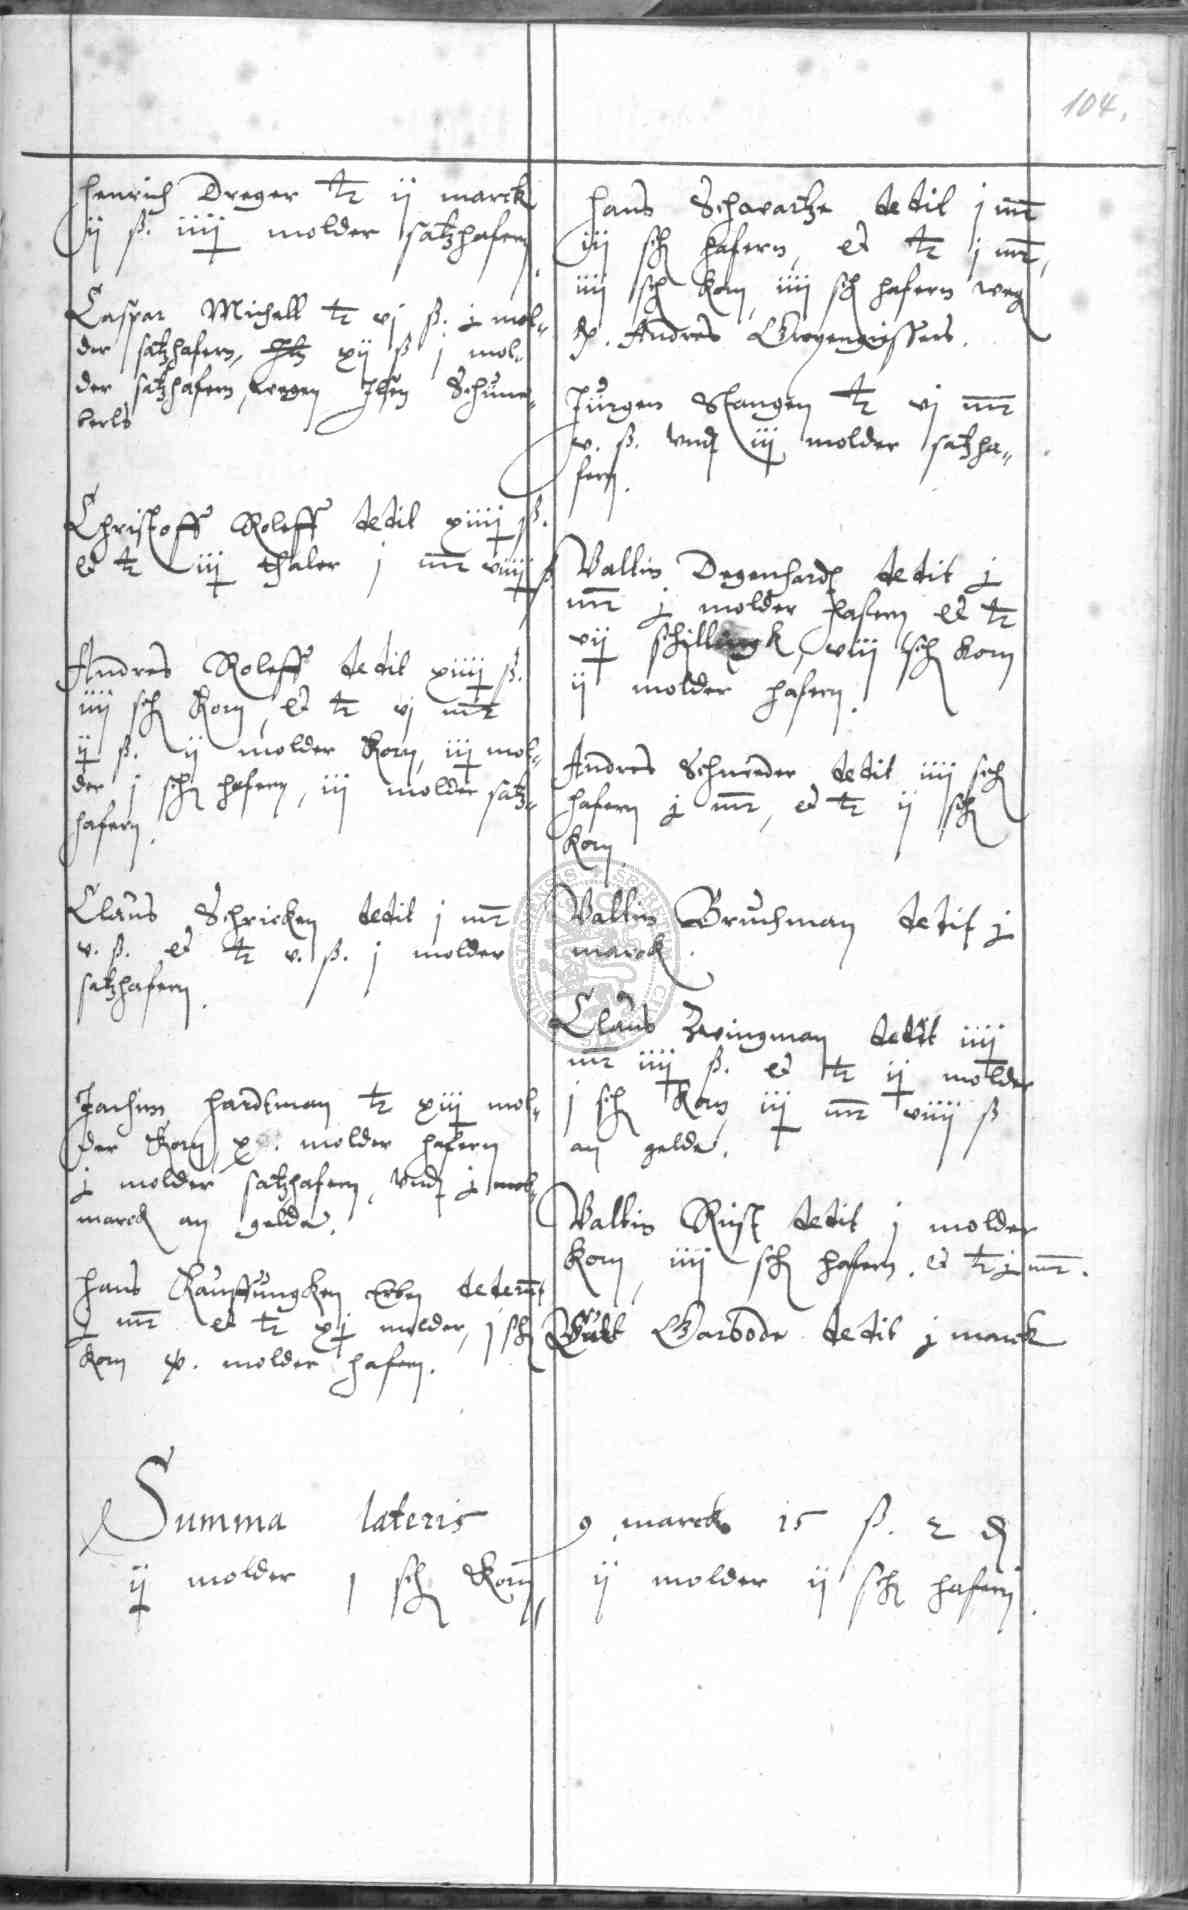 104.
Henrich Dreger tz ij marck
ij ß. iiij molder satzhafern
Caspar Michall tz vj ß. j mol-
der satzhafern, xij ß j mol-
der satzhafern, wegen Ilsen Schune-
berls
Christoff Roleff dedit xiiij ß.
et tz iij thaler j mr viiij ß
Andres Roleff dedit xiiij ß.
iiij sch Korn, et tz vj mr
ij ß. ij molder Korn, iij mol-
der j sch hafern, iij molder satz-
hafern.
Claus Schricken dedit j mr
v. ß. et tz v. ß. j molder
satzhafern.
Jachim Hardtman tz xiij mol-
der Korn molder hafern
j molder satzhafern, vnd j
marck an gelde.
Hans Kauffungken Erben dederunt
j mr et tz xj molder, j sch
Korn v. molder hafern.
Hans Schwartze dedit j mr
iij sch hafern, et tz j mr,
iiij sch Korn, iiij sch hafern weg
Andres
Jurgen Stangen tz vj mr
v. ß. vnd iij molder satzha-
fern.
Valtin Degenhardt dedit j
mr j molder hafern et tz
vij schillingk, viij sch Korn
ij molder hafern.
Andres Schneder dedit iiij sch
hafern j mr, et tz ij sch
Korn
Valtin Bruchman dedit j
marck.
Claus Zwingman dedit iiij
mr iiij ß. et tz ij molder
j sch Korn iij mr viiij ß
an gelde.
Valtin Rust dedit j molder
Korn, iiij sch hafern. et tz j mr.
Garbode dedit j marck
Summa lateris 9 marck 15 ß. 2 d
ij molder j sch Korn, ij molder ij sch hafern.